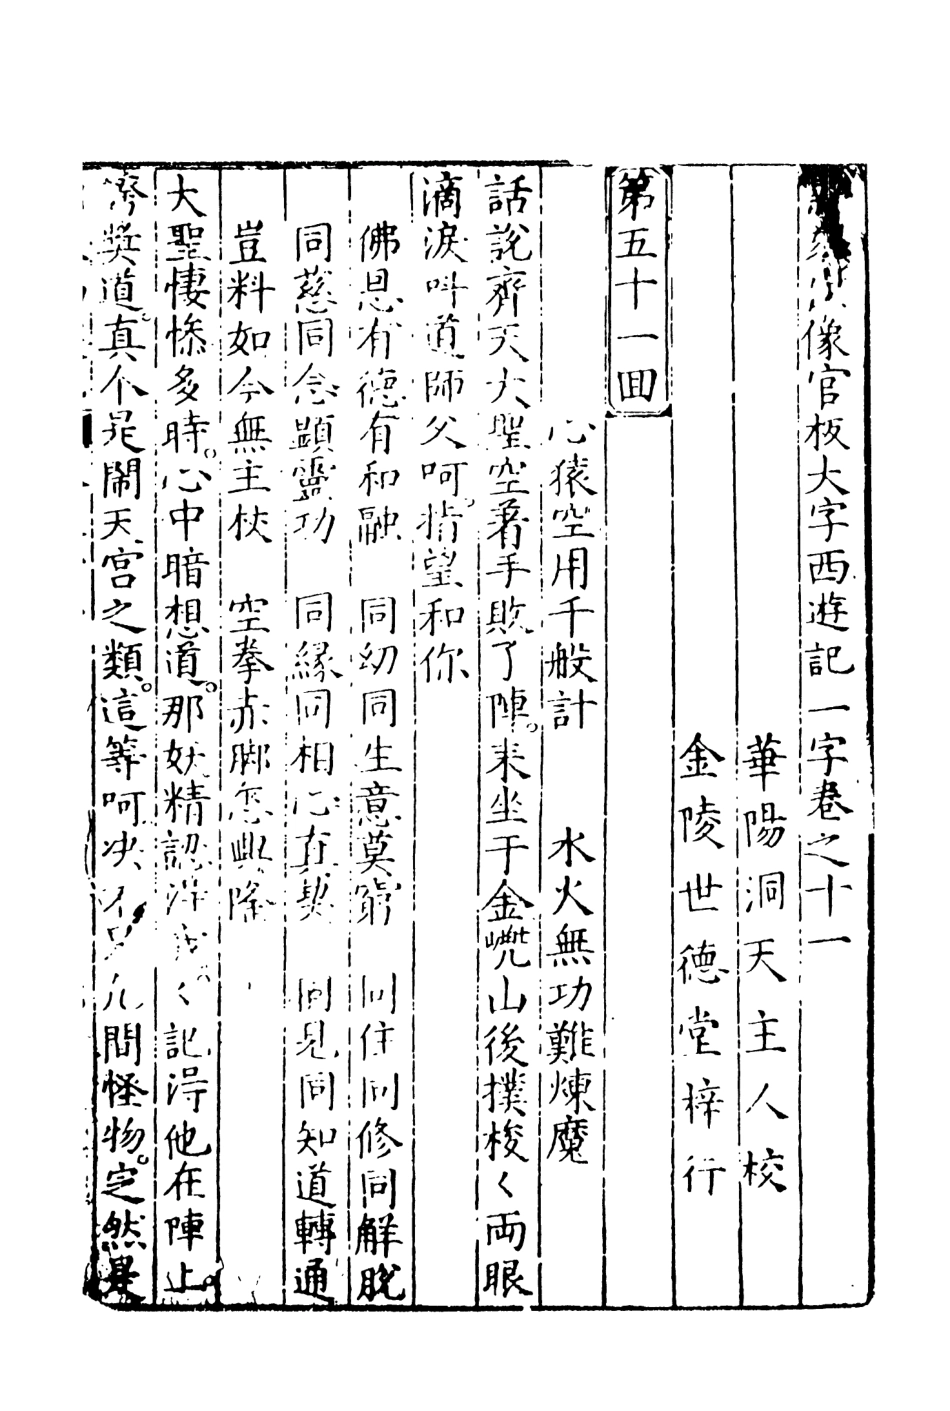 像官板大字西遊記一字卷之十一
華陽洞天主人校
金陵世德堂梓行
第五十一回
心猿空用千般計　水火無功難煉魔
話說齊天大聖空着手敗了陣。来坐于金㠇山後撲梭〱両眼
滴淚叫道師父呵。指望和你
佛恩有德有和融　同幼同生意莫窮　同住同修同解脫
同慈同念顯靈功　同緣同相心真契　同見同知道轉通
豈料如今無主杖　空拳赤脚怎興隆
大聖悽慘多時。心中暗想道。那妖精認淂我。〱記淂他在陣上。
獎道。真个是鬧天宮之類。這等呵决不是凡間怪物。定然是